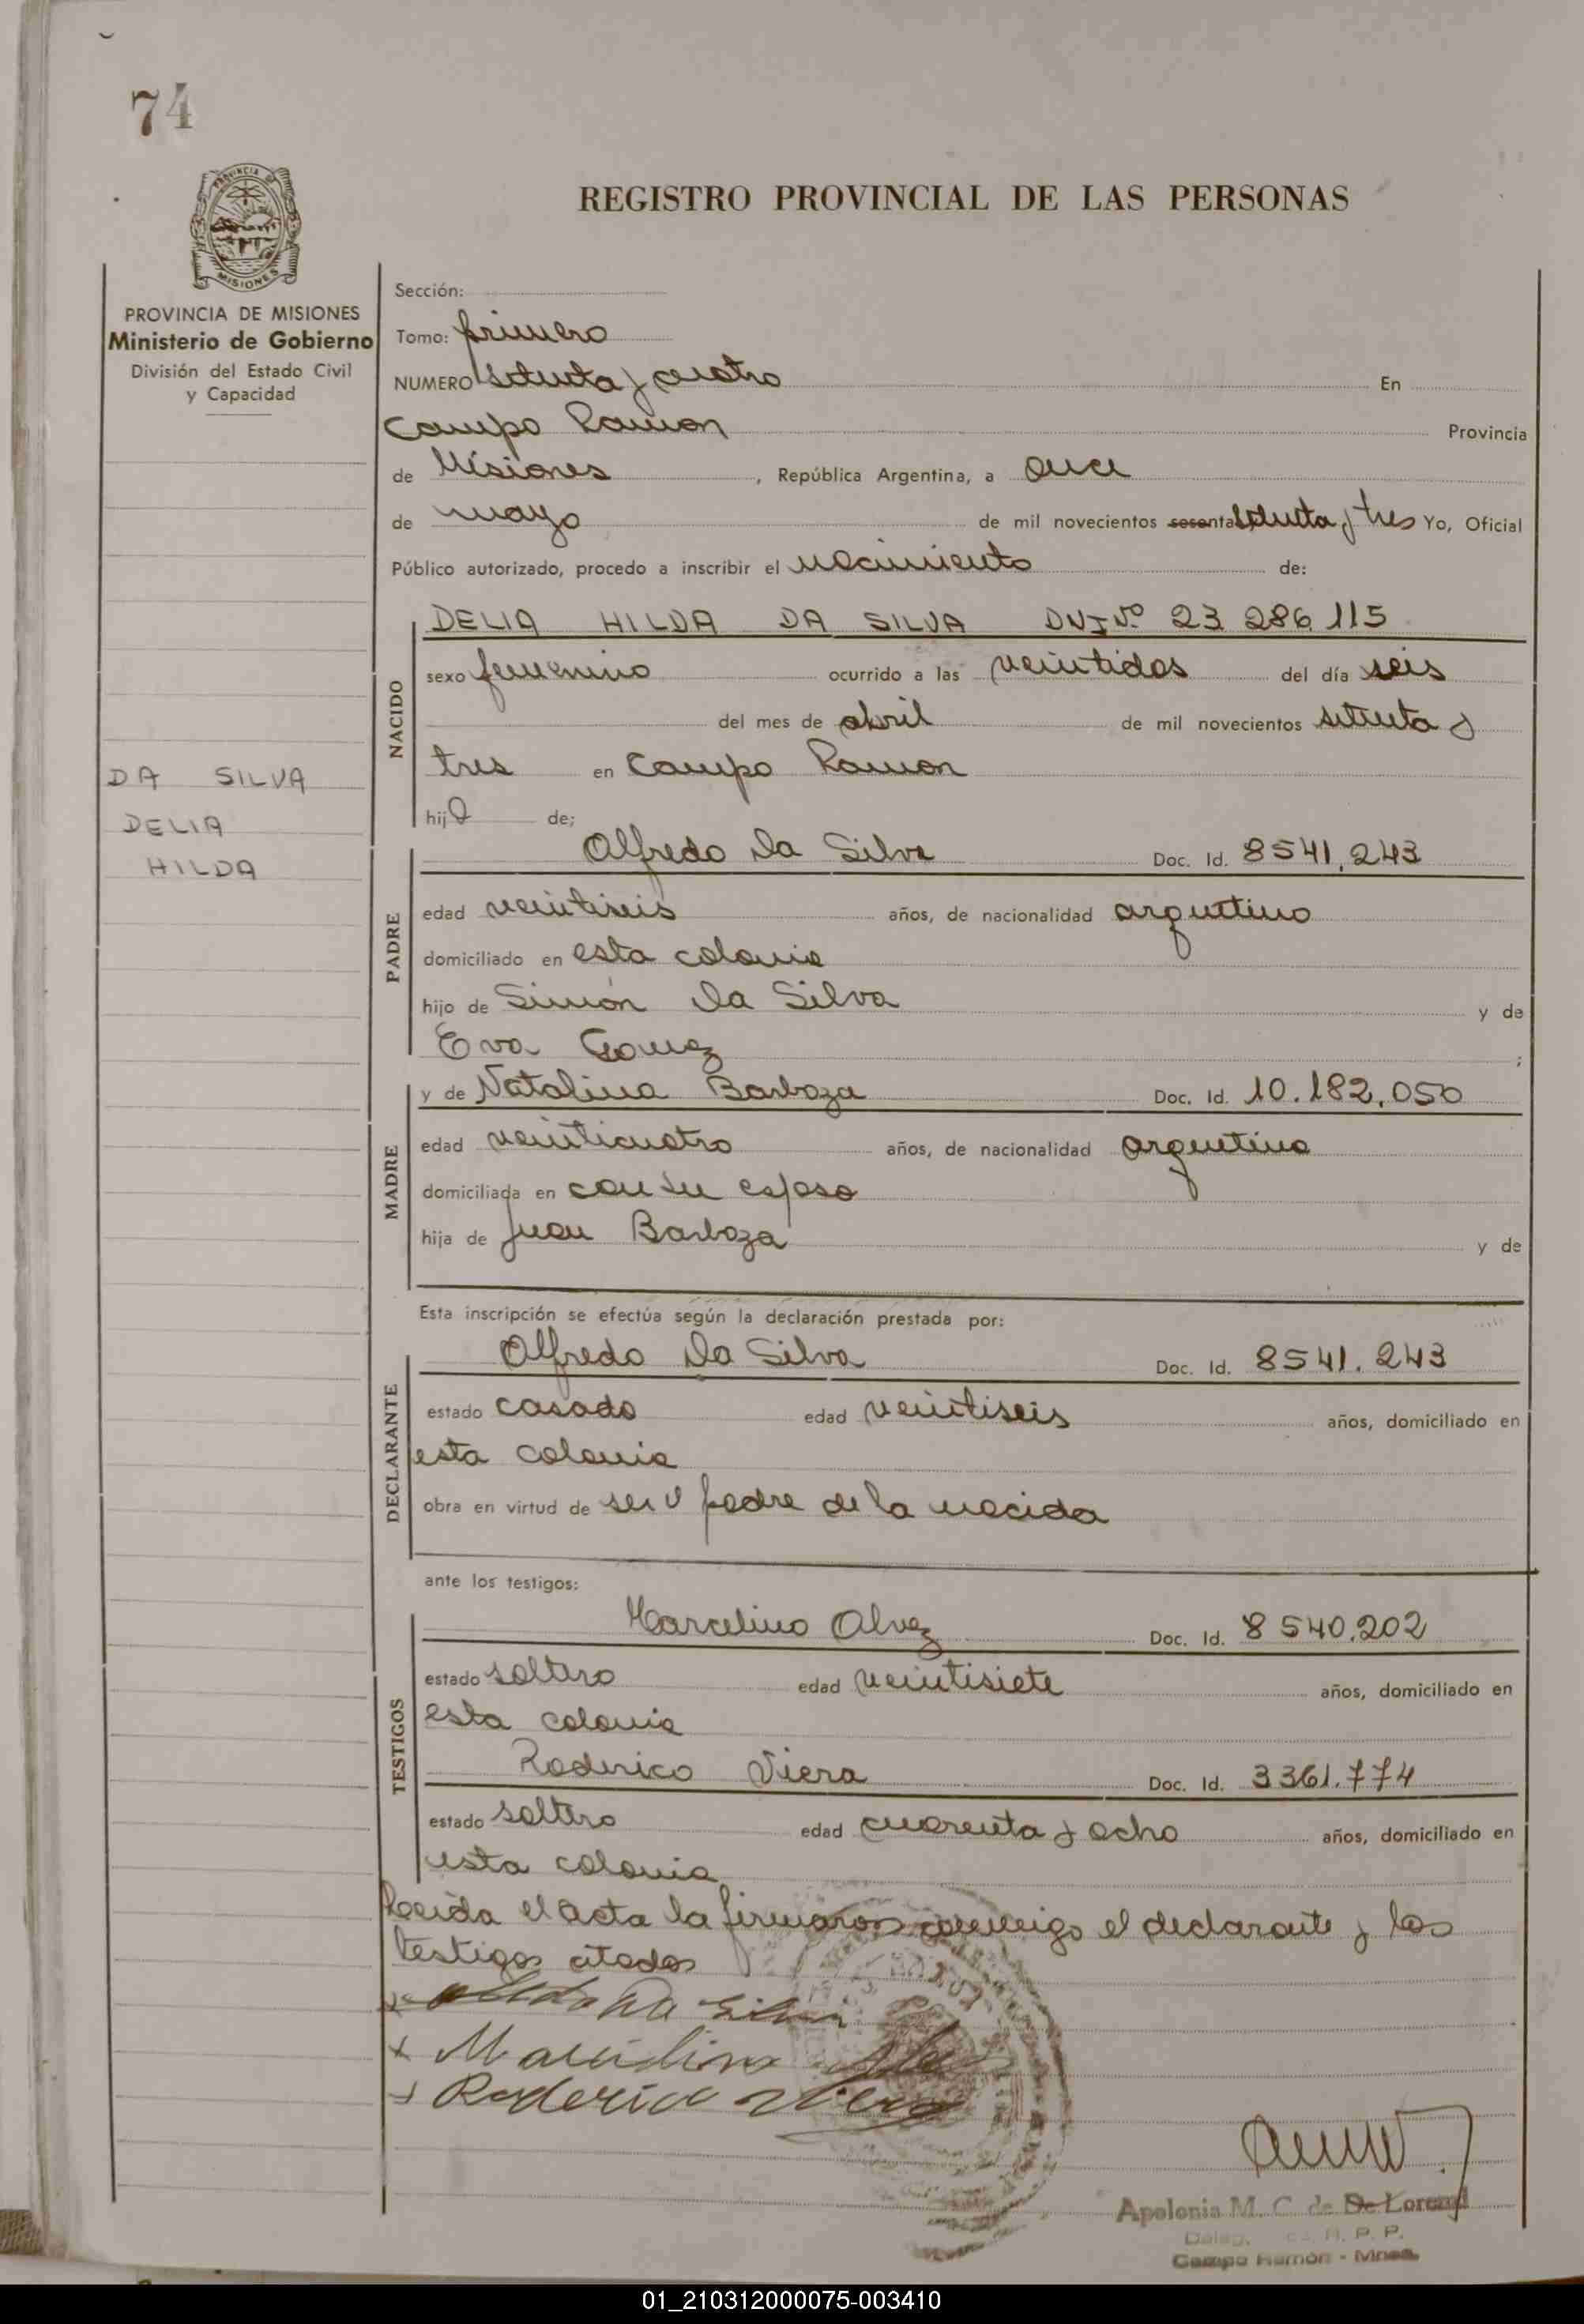 74
PROVINCIA DE
MISIONES
REGISTRO PROVINCIAL DE LAS PERSONAS
PROVINCIA DE MISIONES
Ministerio de Gobierno
División del Estado Civil
y Capacidad
DA SILVA
DELIA
HILDA
Sección:
Tomo: primero
NUMERO setenta y cuatro En
Campo Ramon Provincia
de Misiones, República Argentina, a once
de mayo de mil novecientos sesenta setenta y tres Yo, Oficial
Público autorizado, procedo a inscribir el nacimiento de:
NACIDO
DELIA HILDA DA SILVA DNI Nº 23 286 115
sexo femenino ocurrido a las veintidos del día seis
del mes de abril de mil novecientos setenta y
tres en Campo Ramon
hija de;
PADRE
Alfredo Da Silva Doc. Id. 8541.243
edad veintiseis años, de nacionalidad argentino
domiciliado en esta colonia
hijo de Simón Da Silva y de
Eva Gomez ;
MADRE
y de Natalina Barboza Doc. Id. 10.182.050
edad veinticuatro años, de nacionalidad argentina
domiciliada en con su esposo
hija de Juan Barboza y de
Esta inscripción se efectúa según la declaración prestada por:
DECLARANTE
Alfredo Da Silva Doc. Id. 8541.243
estado casado edad veintiseis años, domiciliado en
esta colonia
obra en virtud de ser padre de la nacida
ante los testigos:
TESTIGOS
Marcelino Alvez Doc. Id. 8 540.202
estado soltero edad veintisiete años, domiciliado en
esta colonia
Roderico Viera Doc. Id. 3361.774
estado soltero edad cuarenta y ocho años, domiciliado en
esta colonia
Leida el acta la firmaron conmigo el declarante y los
testigos citados
Da Silva
Marcelino
Roderico Viera
Apolonia M. C. de De Lorenzi
R. P. P.
Campo Ramón - Mnes.
01_210312000075-003410